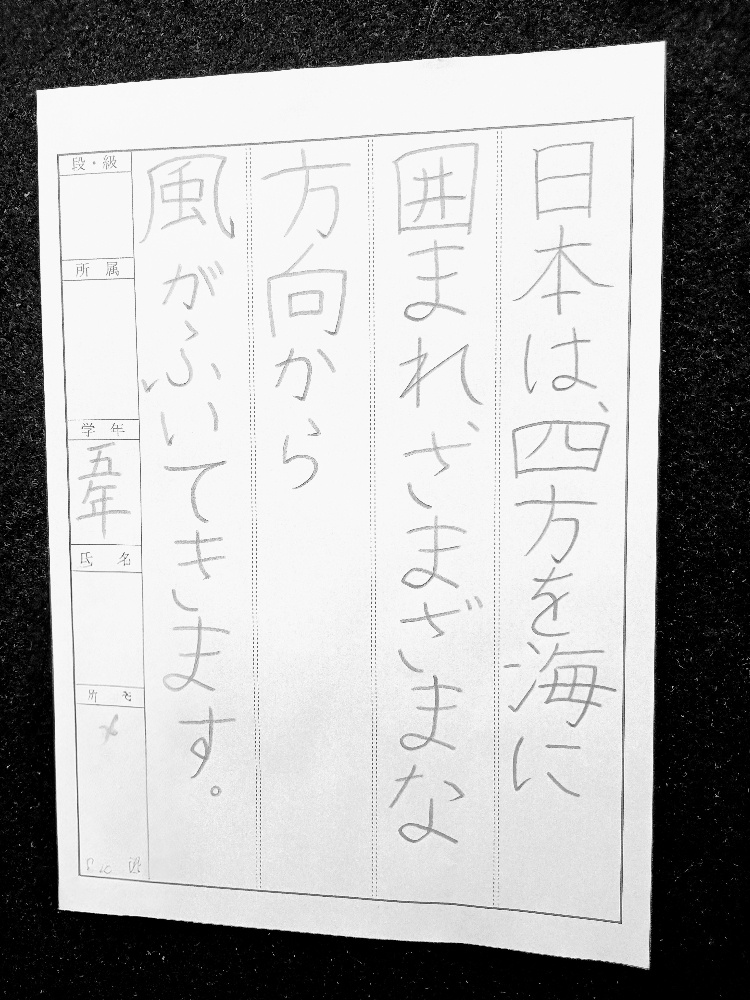 日本は、四方を海に
囲まれざまざまな
方向から
風がふいてきます。
段・級
所属
学年
五年
氏名